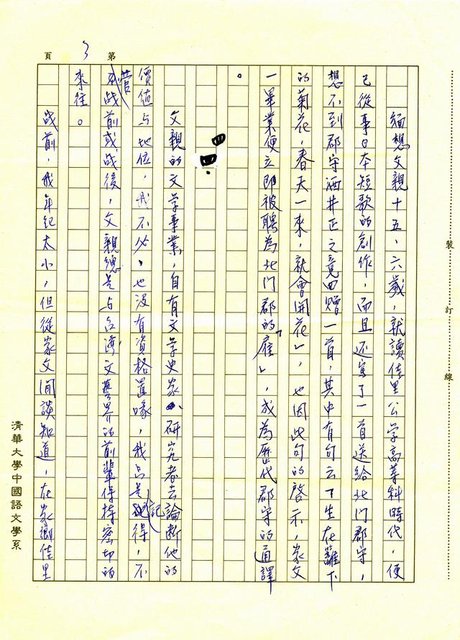 裝 訂 線
緬想父親十五、六歲,就讀佳里公學高等科時代,便
已從事日本短歌的創作,而且还寫了一首送給北門郡守,
想不到郡守酒井正之竟回贈一首,其中有句云「生在籬下
的菊花,春天一來,就會開花」,也因此句的啓示,家父
一畢業便立即被聘為北門郡的「雇」,成為歷代郡守的通譯
。
父親的文学事業,自有文学史家、研究者去論斷他的
價值与地位,我不必、也沒有資格置喙,我只是記得,不
管战前或战後,父親總是与台湾文學界的前輩保持密切的
來往。
战前,我年紀太小,但從家父閒談知道,在家鄉佳里
第3頁
清華大學中國語文學系